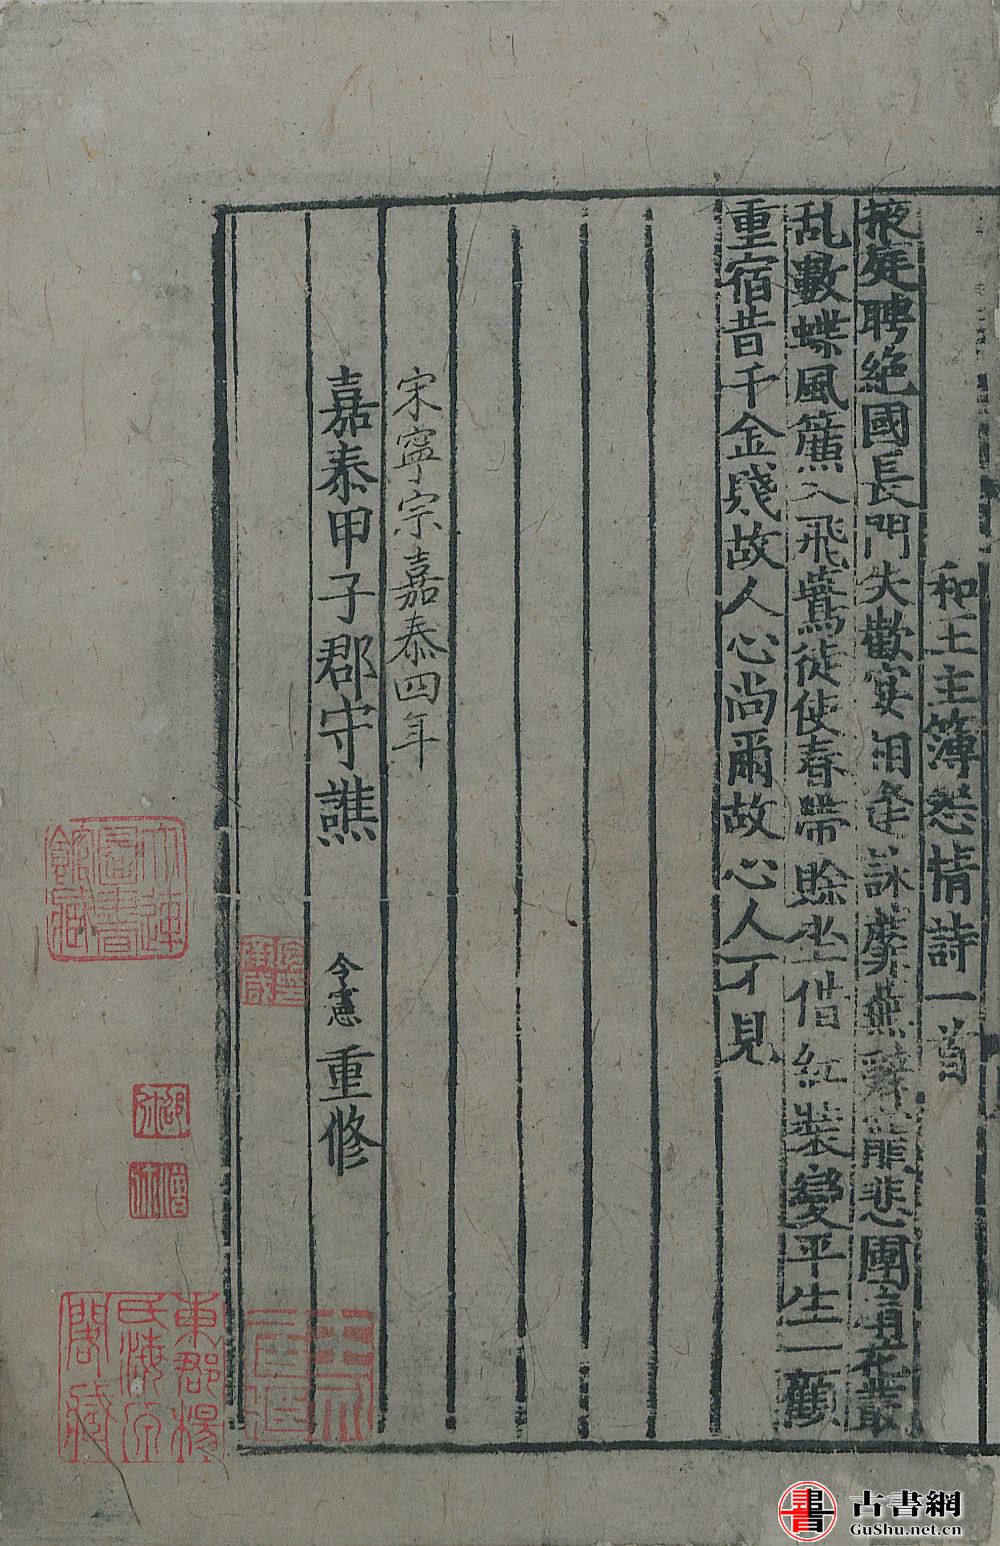 和王主簿怨情詩一首
掖庭聘絶國長門失歡宴相逢詠蘼蕪辭寵悲團扇花叢
乱數蝶風簾入飛鷰徒使春帶賖坐惜紅裝變平生一顧
重宿昔千金賤故人心尚爾故心人不見
宋寧宗嘉泰四年
嘉泰甲子郡守譙 令憲 重修
大連圖書館藏
東郡楊氏海源閣藏
書 古書網
GuShu.net.cn